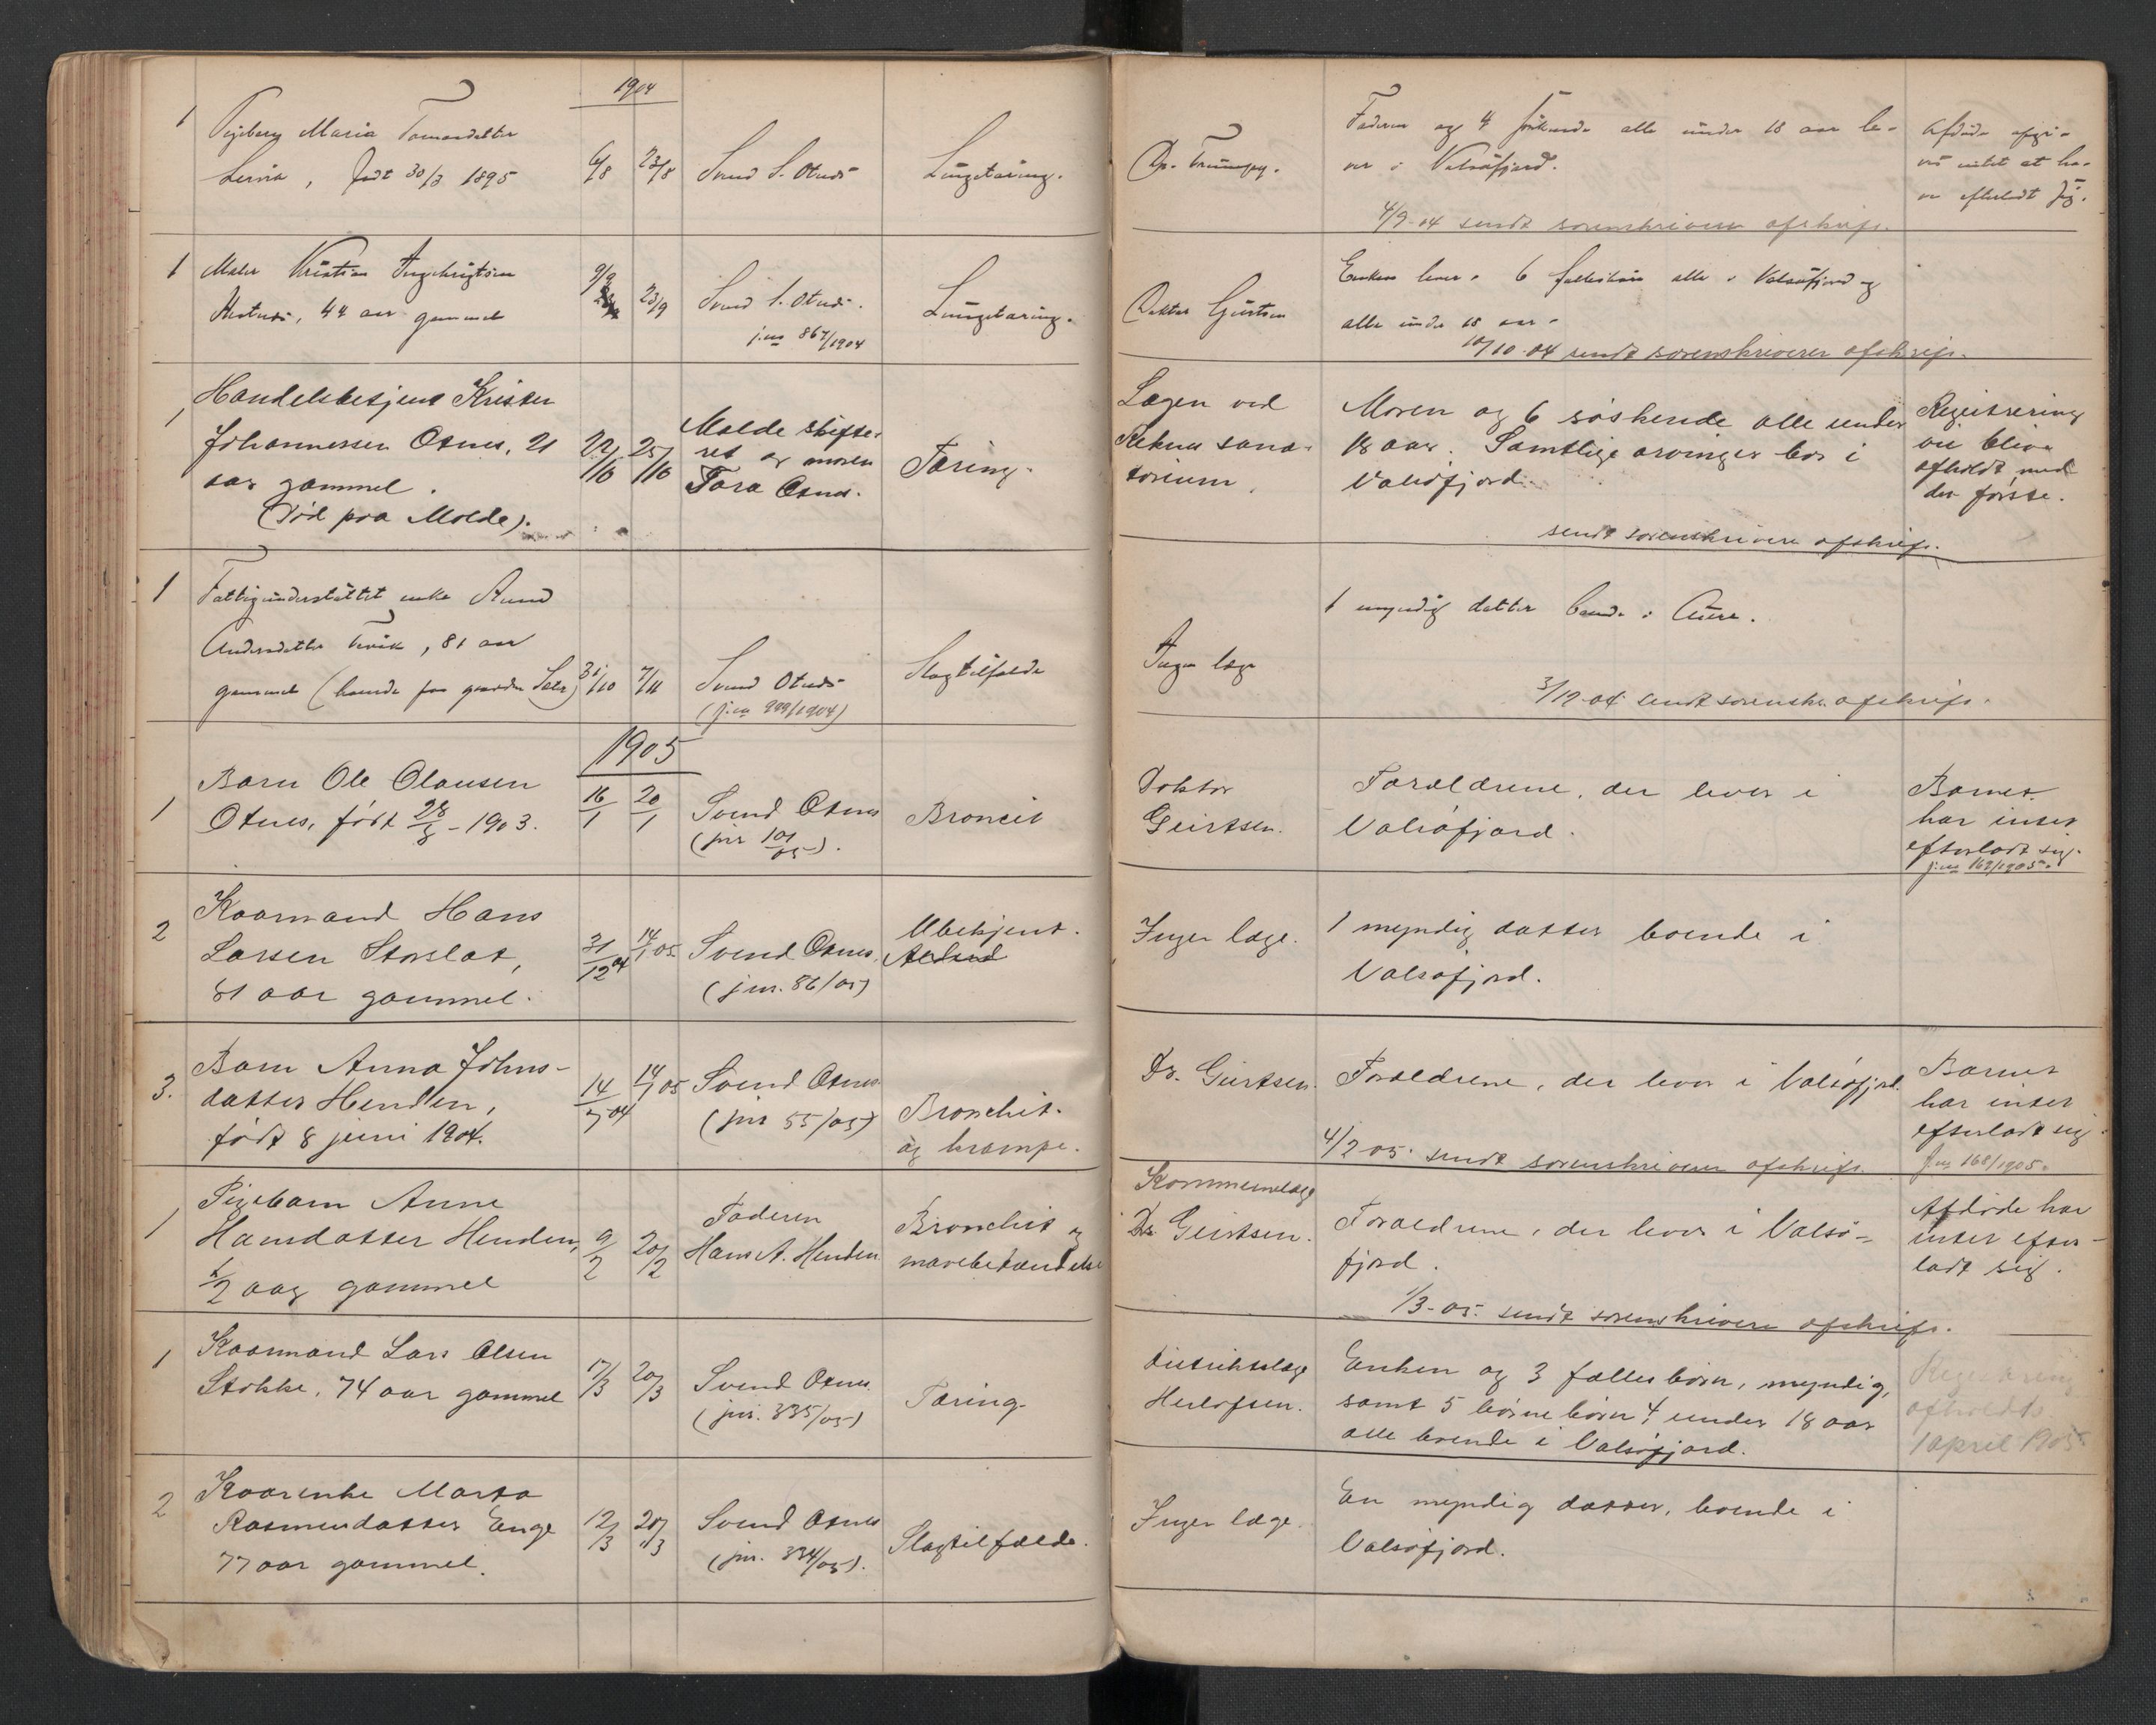 1904
1 Maria
Lervik, født 30/3 1895
6/8 23/8
Svend S. Otnes
Lungetæring.
Dr.
Faderen og 4 søskende alle under 18 aar le-
ver i Valsøfjord.
4/9-04 sendt sorenskriveren afskrift.
Afdøde opgi-
ves intet at ha-
ve efterladt sig.
1 Maler Kristian Ingebrigtsen
44 aar gammel
9/9 23/9
Svend S. Otnes.
j.no 867/1904
Lungetæring.
Doktor Geirtsen
Enken lever. 6 fællesbørn alle i Valsøfjord og
alle under 18 aar.
10/10-04 sendt sorenskriveren afskrift.
1 Handelsbetjent Krister
Johannessen Otnes, 21
aar gammel.
(Død paa Molde).
22/10 25/10
Molde skifte-
ret og moren
Tora Otnes.
Tæring.
Lægen ved
Reknes sana-
torium.
Moren og 6 søskende alle under
18 aar. Samtlige arvinger bor i
Valsøfjord.
sendt sorenskriveren afskrift.
Registrering
vil blive
afholdt med
det første.
1 Fattigunderstøttet enke
Andersdatter 81 aar
gammel (boende paa gaarden
31/10 7/11
Svend Otnes
(j.no 999/1904)
Slagtilfælde
Ingen læge
1 myndig datter boende i Aure.
3/12-04 sendt sorenskr. afskrift.
1905
1 Barn Ole Olausen
Otnes, født 28/8 - 1903.
16/1 20/1
Svend Otnes
(jnr 101/05).
Broncit
Doktor
Geirtsen.
Forældrene, der lever i
Valsøfjord.
Barnet
har intet
efterladt sig.
j.no 162/1905.
2 Kaarmand Hans
Larsen Storslot,
81 aar gammel.
31/12 04 14/1 05
Svend Otnes.
(jnr. 86/05)
Ubekjent.
Ingen læge.
1 myndig datter boende i
Valsøfjord.
3. Barn Anna Johns-
datter Henden,
født 8 juni 1904.
14/7 04 14/1 05
Svend Otnes
(jnr 55/05)
Bronchit.
og krampe.
Dr. Geirtsen.
Forældrene, der lever i Valsøfjord.
4/2-05. sendt sorenskriveren afskrift.
Barnet
har intet
efterladt sig.
j.no 168/1905.
1 Pigebarn Anne
Hansdatter Henden,
1/2 aar gammel
9/2 20/2
Faderen
Hans A. Henden
Bronchit og
mavebetændelse
Kommunelæge
Dr Geirtsen.
Forældrene, der lever i Valsø-
fjord.
1/3-05. sendt sorenskriveren afskrift.
Afdøde har
intet efter-
ladt sig.
1 Kaarmand Lars Olsen
Stokke, 74 aar gammel
17/3 20/3
Svend Otnes.
(jnr. 335/05)
Tæring.
Distriktslæge
Herlofsen.
Enken og 3 fællesbørn, myndig,
samt 5 børnebørn, 4 under 18 aar
alle boende i Valsøfjord.
Registrering
afholdt
1 april 1905.
2 Kaarenke Marta
Rasmusdatter Enge
77 aar gammel.
12/3 20/3
Svend Otnes
(jnr. 334/05).
Slagtilfælde.
Ingen læge.
En myndig datter, boende i
Valsøfjord.